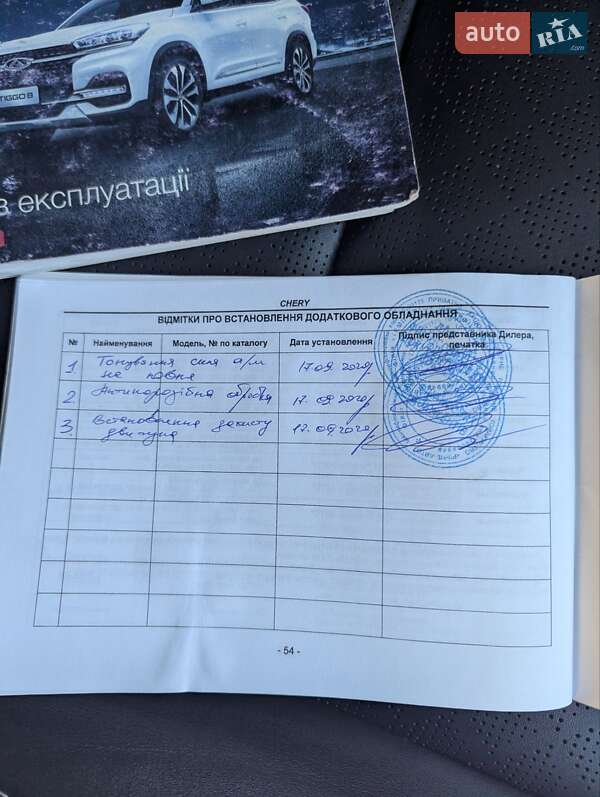 auto RIA.com
TIGGO 8
з експлуатації
CHERY
ВІДМІТКИ ПРО ВСТАНОВЛЕННЯ ДОДАТКОВОГО ОБЛАДНАННЯ
№ Найменування Модель, № по каталогу Дата установлення Підпис представника Дилера, печатка
1. Тонування скла а/м 17.09.2020р
не повне
2. Антикорозійна обробка 17.09.2020р
3. Встановлення захисту 17.09.2020р
двигуна
- 54 -